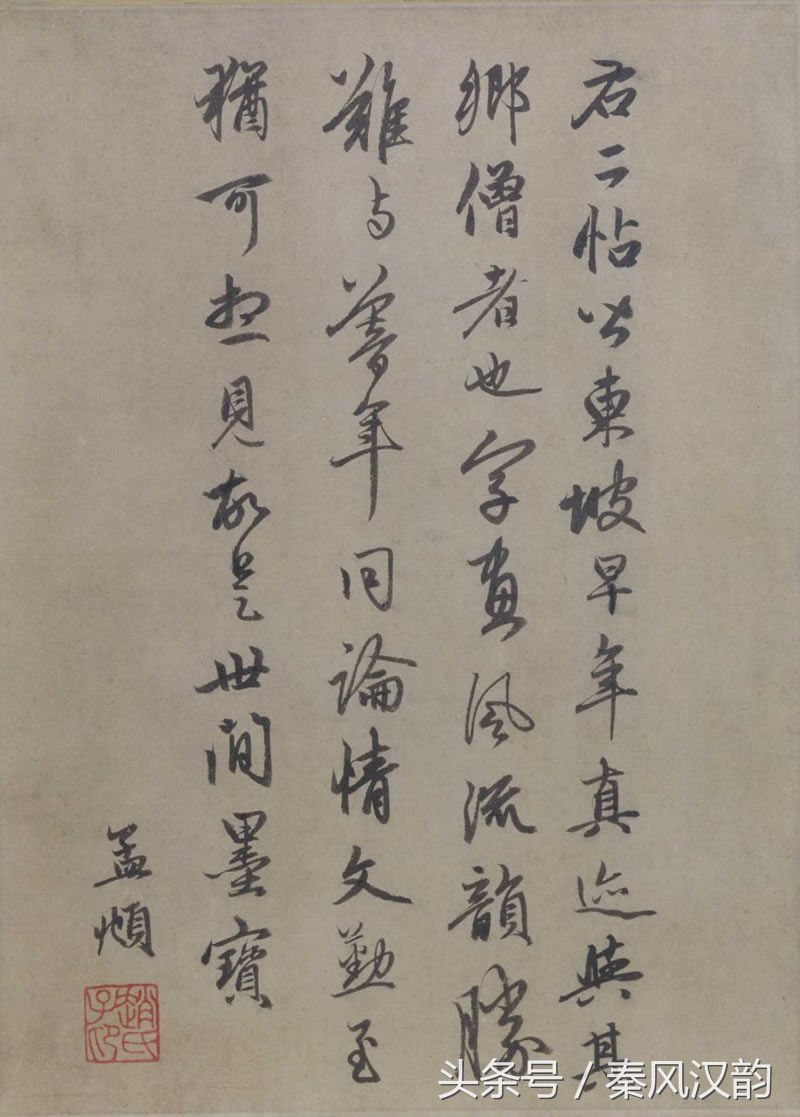 右二帖皆東坡早年真迹與其
鄉僧者也字畫風流韻勝
難与暮年同論情文勤至
猶可想見故是世間墨寶
孟頫
趙氏子印
头条号 / 秦风汉韵